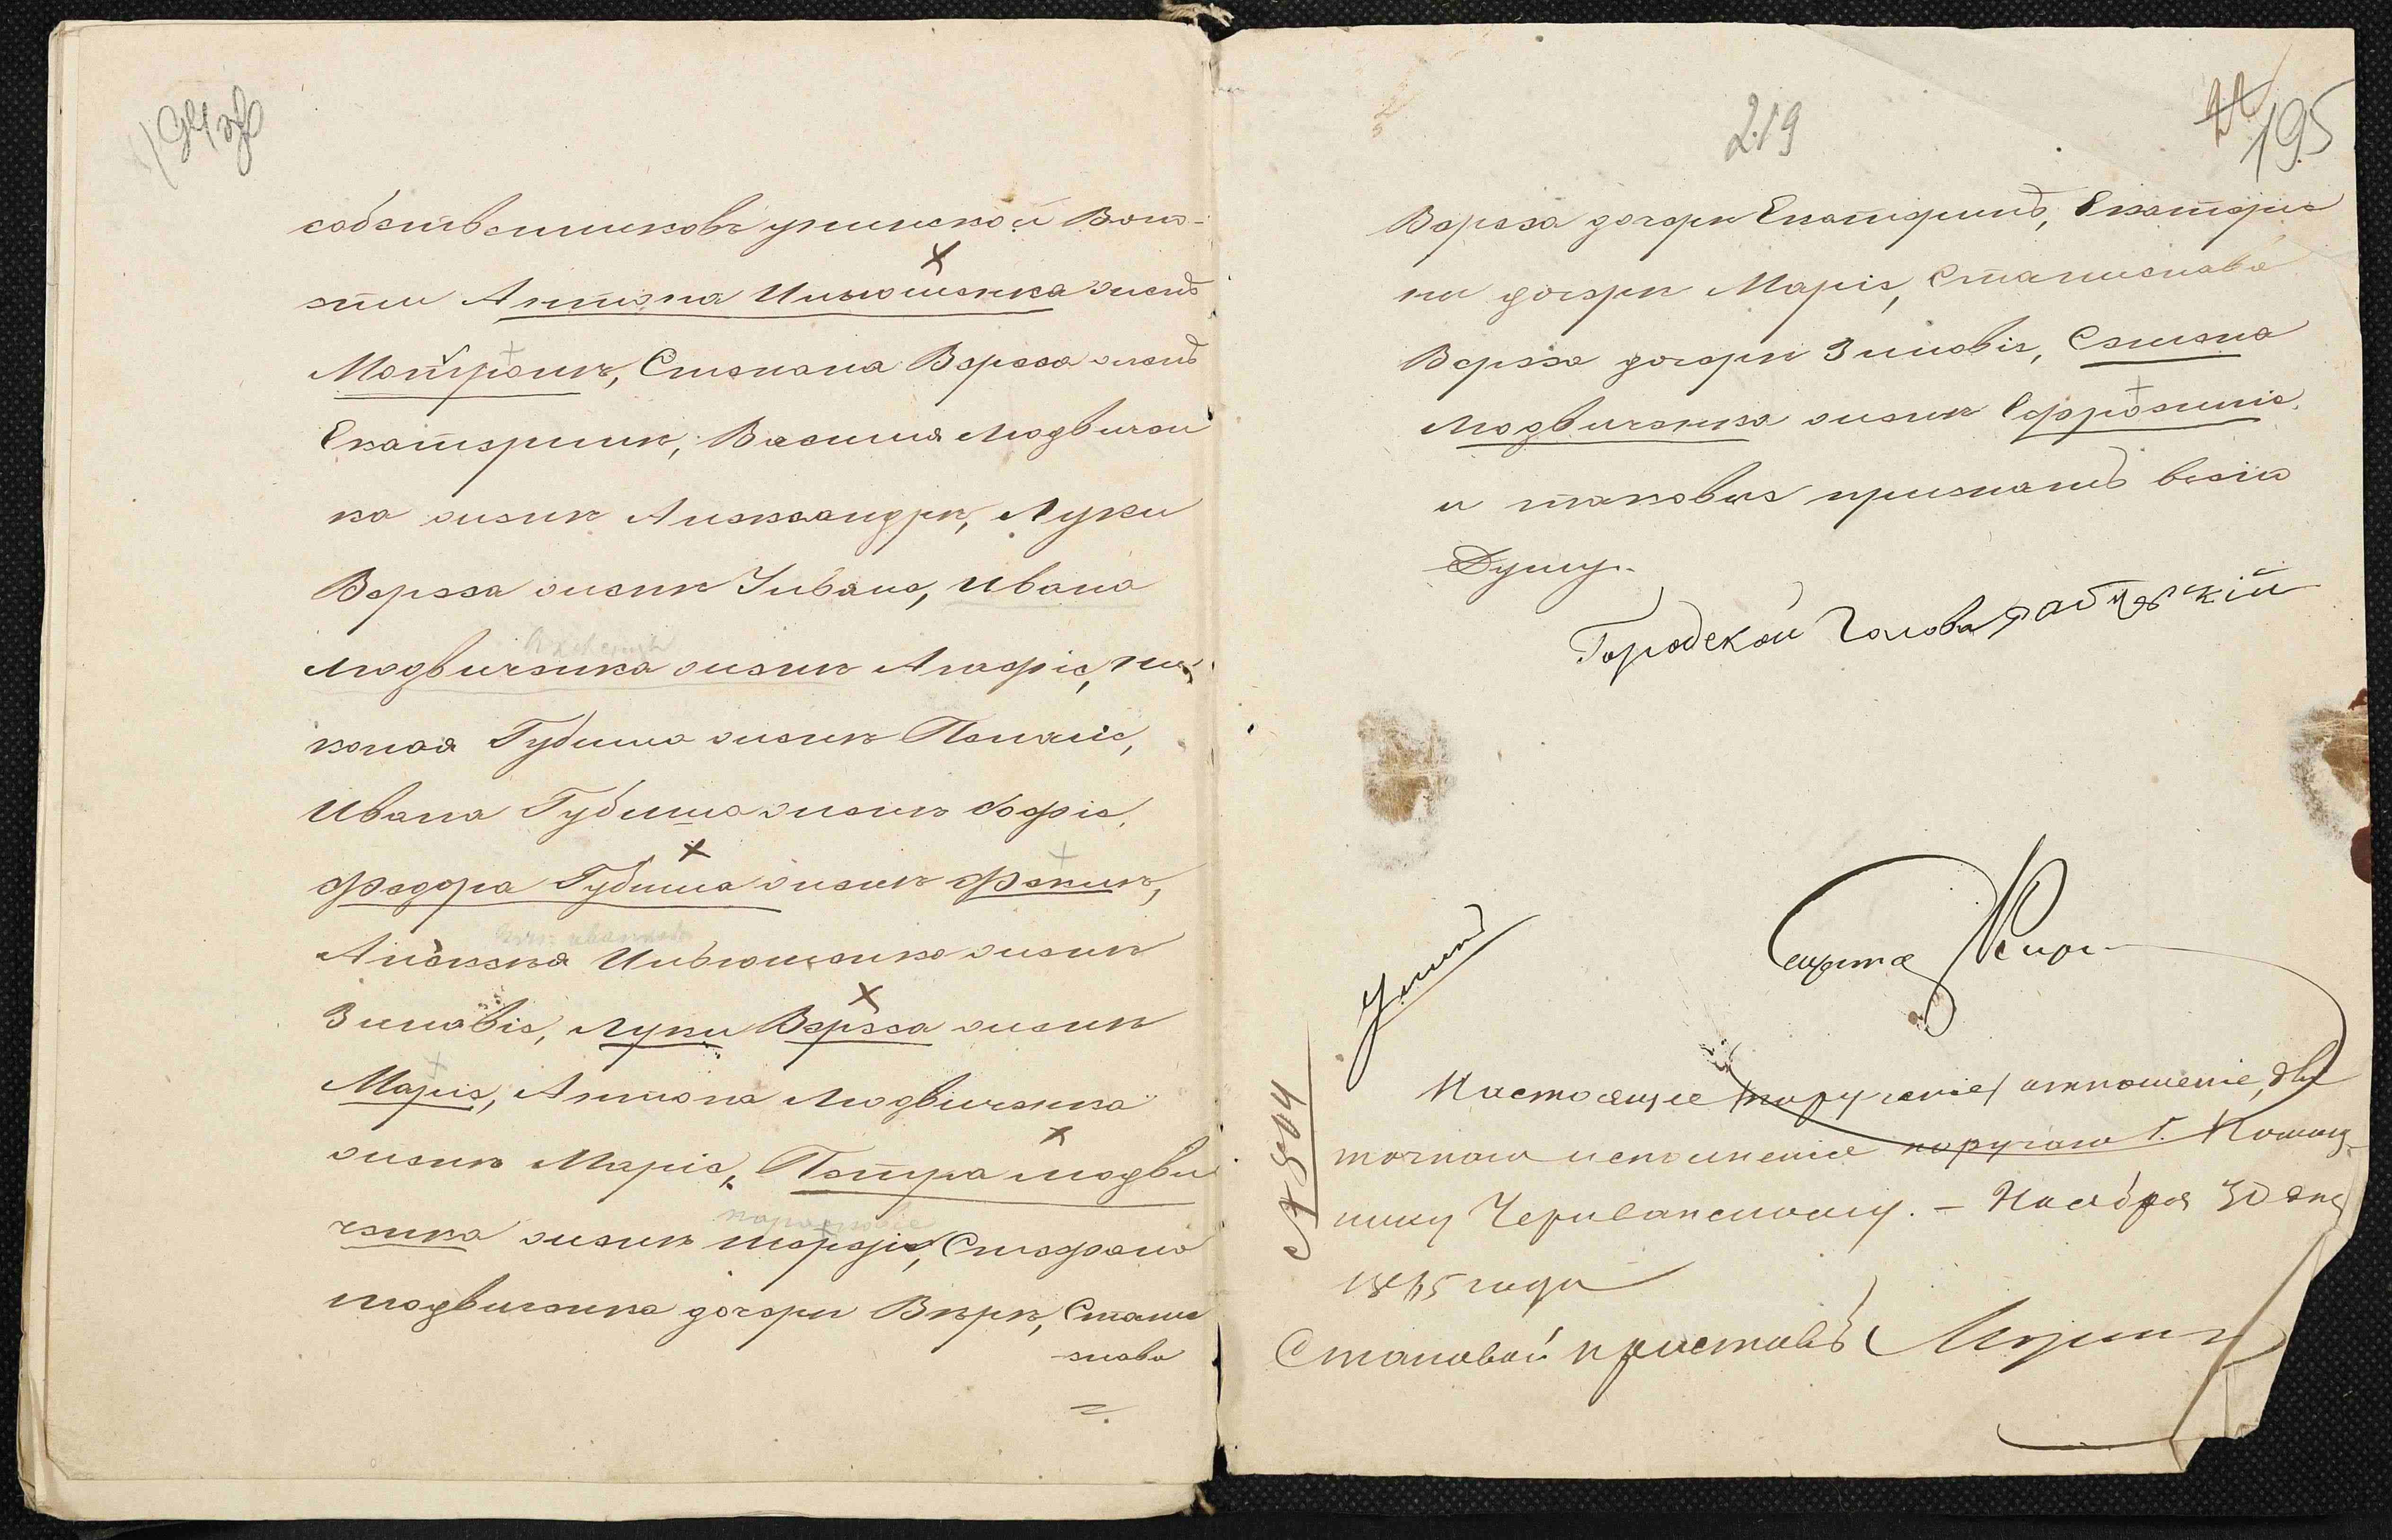 194 об
собственниковъ унинской Воло-
сти Антона Ильюшенка женѣ
Мотронѣ, Степана Верзза женѣ
Екатеринѣ, Василия Людвичен
ка женѣ Александрѣ, Луки
Верзза женѣ Ивана, Ивана
Людвиченка женѣ Агафіе, Ни
колая Губина женѣ Пелагіе,
Ивана Губина женѣ Софіе,
Федора Губина женѣ Феклѣ,
Алексея Ильюшенка женѣ
Зиновіе, Луки Верзза женѣ
Маріе, Антона Людвиченка
женѣ Маріе, Петра Людви
парасковіе
ченка женѣ Марфіе, Стефана
Людвиченка дочери Вѣрѣ, Стани
слава
219
195
Верзза дочери Екатеринѣ, Екатери
ны дочери Маріе, Станислава
Верзза дочери Зиновіе, Семена
Людвиченка женѣ Ефросиніе.
и таковыя прислать въ сію
Думу.
Городской Голова
Настоящее порученіе отношеніе, для
точнаго исполненія поручаю Г. Помощ-
нику Черилавскому. – Ноября 30 дня
1865 года
Становой приставъ